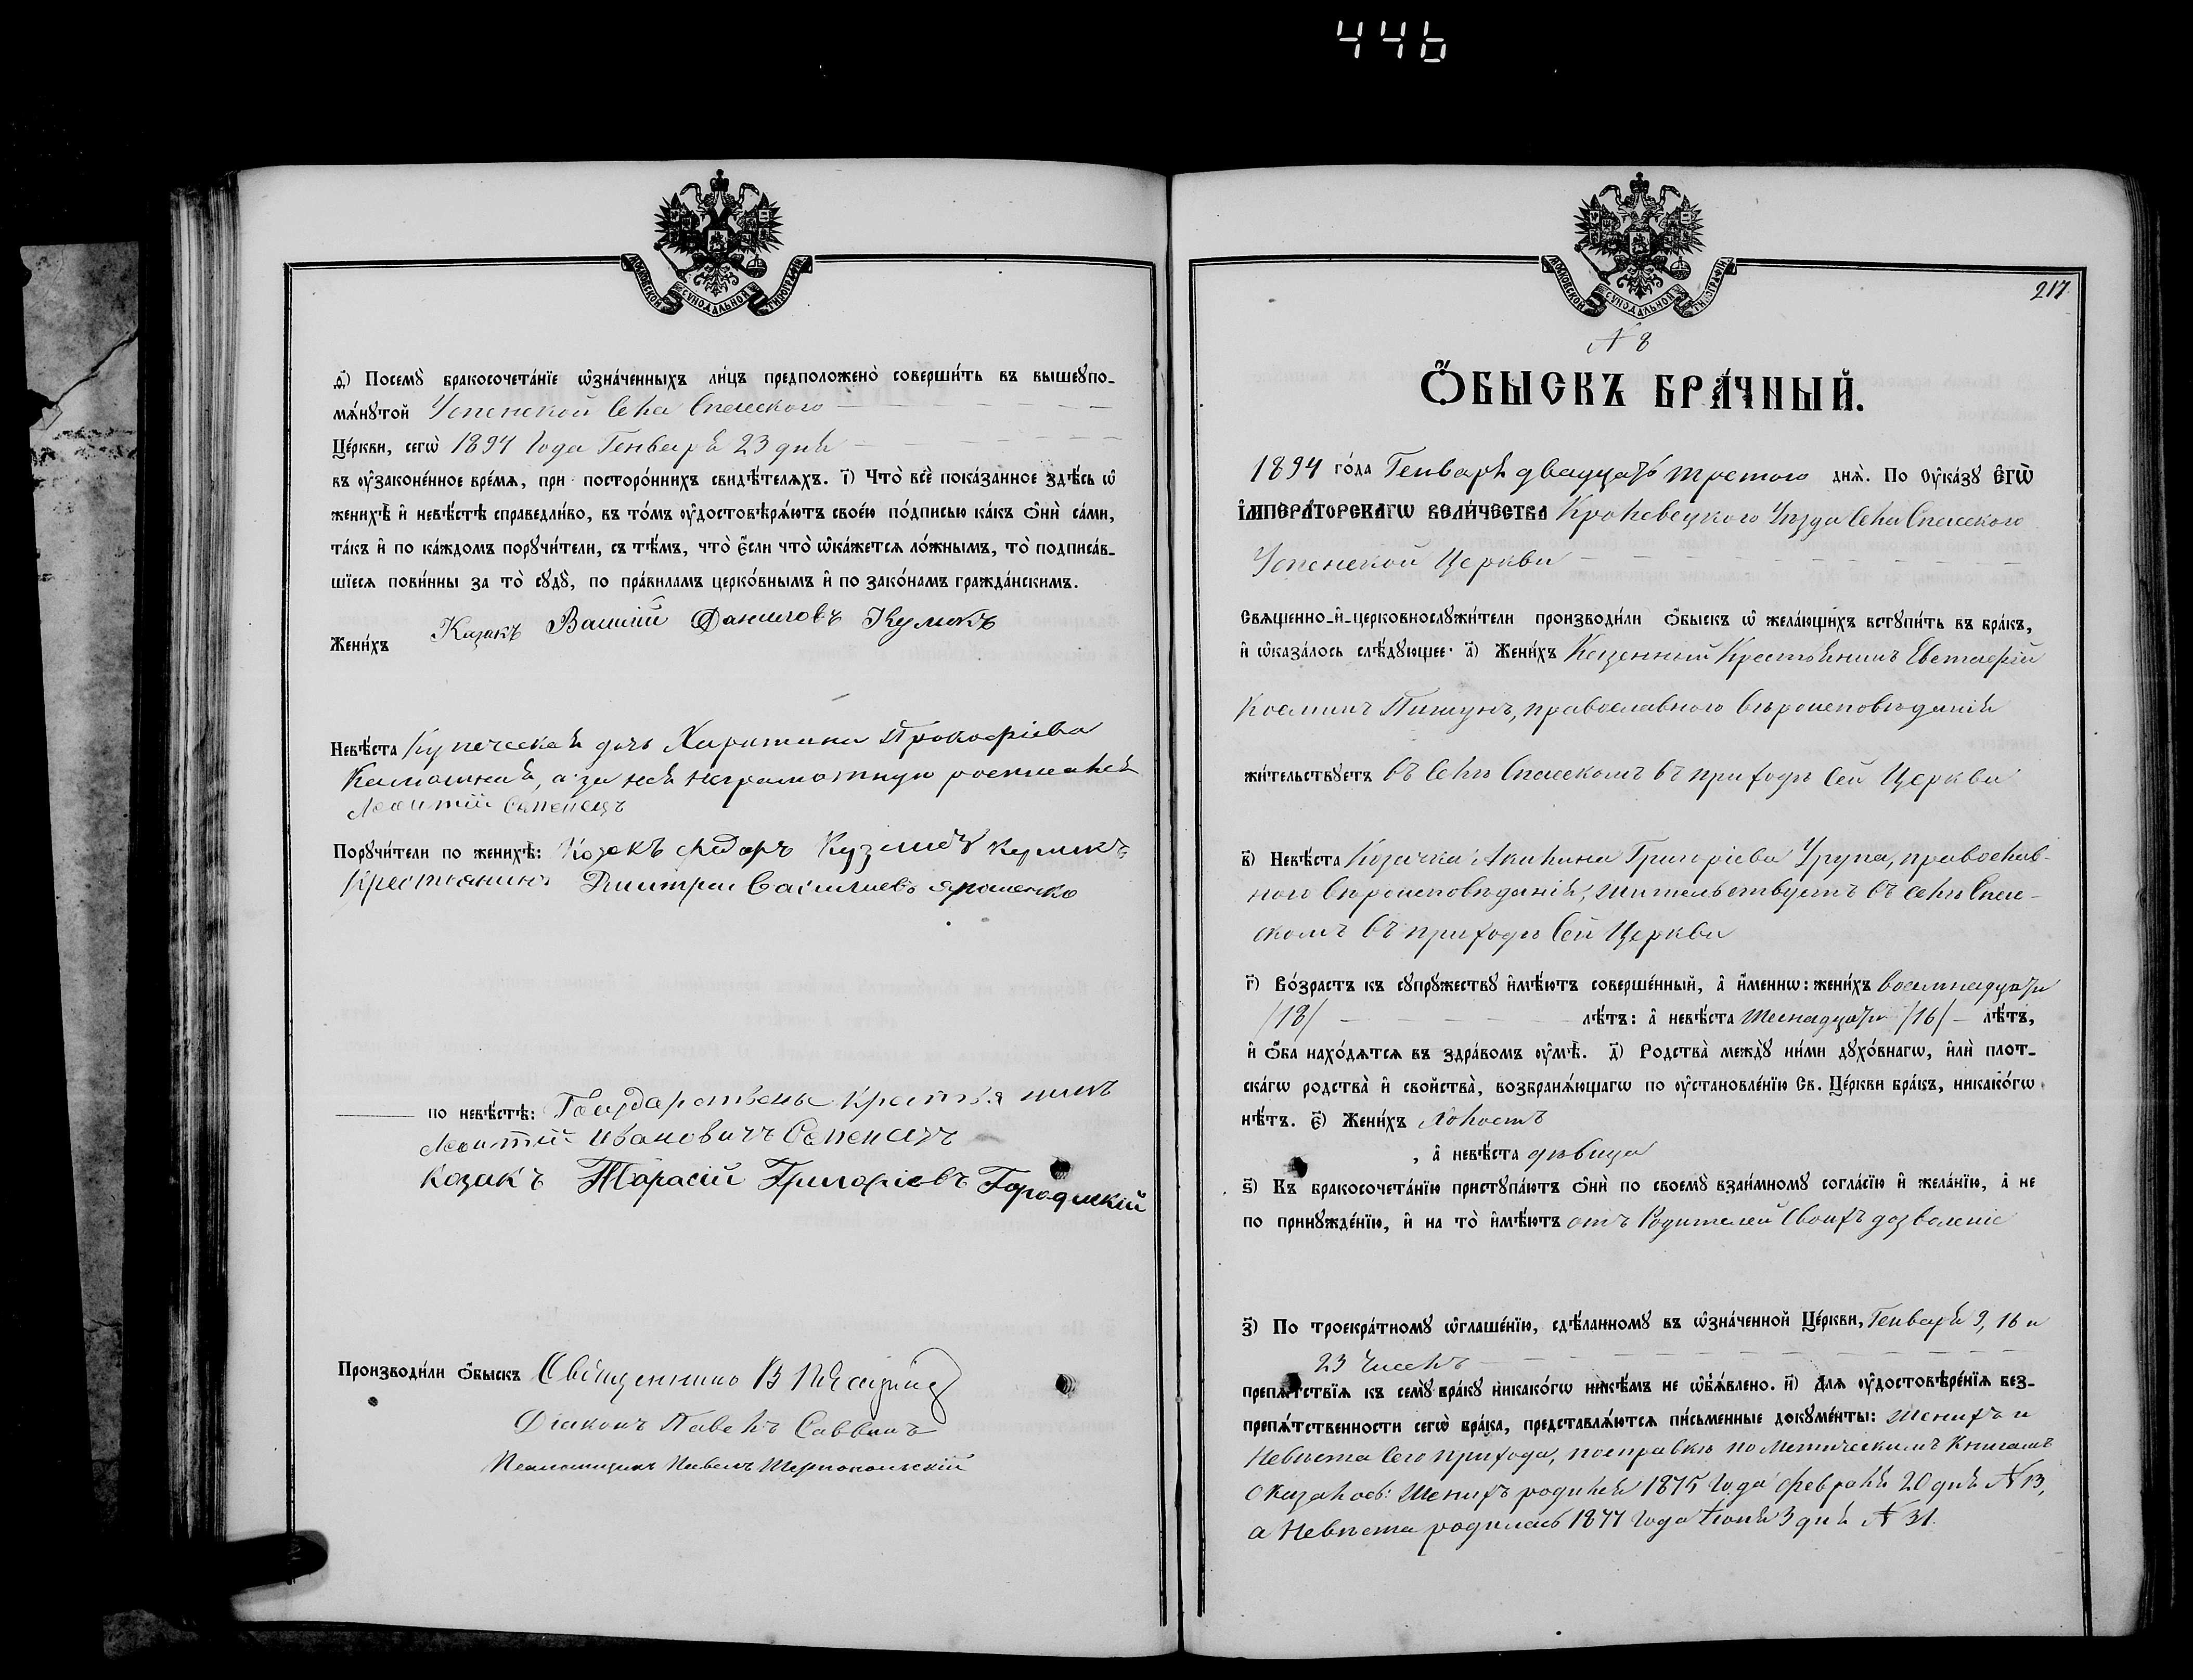 446
МОСКОВСКОЙ СѴНОДАЛЬНОЙ ТИПОГРАФІИ
д҃) Посемꙋ̀ бракосочета́нїе ѡ҆зна́ченныхъ ли́цъ предположено̀ соверши́ть въ вышеꙋпо-
мѧ́нꙋтой Успенской Села Спасскаго
Це́ркви, сегѡ̀ 1894 года Генваря 23 дня
въ ᲂу҆законе́нное вре́мѧ, при посторо́ннихъ свидѣ́телѧхъ. і҃) Что̀ всѐ пока́занное здѣ́сь ѡ҆
женихѣ̀ и҆ невѣ́стѣ справедли́во, въ то́мъ ᲂу҆достовѣрѧ́ютъ свое́ю по́дписью ка́къ ѻ҆нѝ са́ми,
та́къ и҆ по ка́ждомъ порꙋчи́тели, съ тѣ́мъ, что̀ є҆́сли что̀ ѡ҆ка́жетсѧ ло́жнымъ, то̀ подписа́в-
шїесѧ пови́нны за то̀ сꙋдꙋ̀, по пра́виламъ церко́внымъ и҆ по зако́намъ гражда́нскимъ.
Жени́хъ Козакъ Василій Даниловъ Куликъ
Невѣ́ста Купеческая дочь Харитина Прокофіева
а за нея неграмотную росписался
Леонтій Сепенецъ
Порꙋчи́тели по женихѣ̀: Козакъ Ѳедоръ Кузмовъ Куликъ
Крестьянинъ Дмитрій Василиевъ Ярошенко
по невѣ́стѣ: Государственъ Крестьянинъ
Леонтій Ивановичъ Сепенецъ
Козакъ Тарасій Григоріевъ Городицкій
Производи́ли ѻ҆́быскъ Священникъ В
Діаконъ Павелъ Саввинъ
Псаломщикъ Павелъ
МОСКОВСКОЙ СѴНОДАЛЬНОЙ ТИПОГРАФІИ
217
N 8
Ѻ҆́БЫСКЪ БРА́ЧНЫЙ.
1894 го́да Генваря двадцать третого днѧ̀. По ᲂу҆ка́зꙋ Є҆гѡ̀
І҆мпера́торскагѡ Вели́чества Кролевецкого Уѣзда Села Спасского
Успенской Церкви
Свѧще́нно-и҆-церковнослꙋжи́тели производи́ли ѻ҆́быскъ ѡ҆ жела́ющихъ встꙋпи́ть въ бра́къ,
и҆ ѡ҆каза́лось слѣ́дꙋющее: а҃) Жени́хъ Казенный Крестьянинъ Евстафій
Косминъ Пикунъ, православного вѣроисповѣданія
жи́тельствꙋетъ въ Селѣ Спасскомъ въ приходѣ Сей Церкви
в҃) Невѣ́ста Козачка Акилина Григоріева Урупа, православ-
ного вѣроисповѣданія, жительствуетъ въ селѣ Спас-
скомъ въ приходѣ Сей Церкви
г҃) Во́зрастъ къ сꙋпрꙋ́жествꙋ и҆мѣ́ютъ соверше́нный, а҆ и҆́меннѡ: жени́хъ восемнадцати
/18/ лѣ́тъ: а҆ невѣ́ста шеснадцати /16/ лѣ́тъ,
и҆ ѻ҆́ба нахо́дѧтсѧ въ здра́вомъ ᲂу҆мѣ̀. д҃) Родства̀ междꙋ̀ ни́ми дꙋхо́внагѡ, и҆лѝ плот-
ска́гѡ родства̀ и҆ сво́йства, возбранѧ́ющагѡ по ᲂу҆становле́нїю Св. Це́ркви бра́къ, никако́гѡ
нѣ́тъ. є҃) Жени́хъ Холостъ
, а҆ невѣ́ста дѣвица
ѕ҃) Къ бракосочета́нїю пристꙋпа́ютъ ѻ҆нѝ по своемꙋ̀ взаи́мномꙋ согла́сїю и҆ жела́нїю, а҆ не
по принꙋжде́нїю, и҆ на то̀ и҆мѣ́ютъ отъ Родителей Своихъ дозволеніе
з҃) По троекра́тномꙋ ѡ҆глаше́нїю, сдѣ́ланномꙋ въ ѡ҆зна́ченной Це́ркви, Генваря 9, 16 и
23 числъ
препѧ́тствїѧ къ семꙋ̀ бра́кꙋ никако́гѡ никѣ́мъ не ѡ҆б̾ѧ́влено. и҃) Длѧ ᲂу҆достовѣре́нїѧ без-
препѧ́тственности сегѡ̀ бра́ка, представлѧ́ютсѧ пи́сьменные докꙋме́нты: Женихъ и
Невѣста Сего прихода, по справкѣ по Метическимъ Книгамъ
Оказалось: Женихъ родился 1875 года февраля 20 дня N 13,
а Невѣста родилась 1877 года Іюня 3 дня N 31.